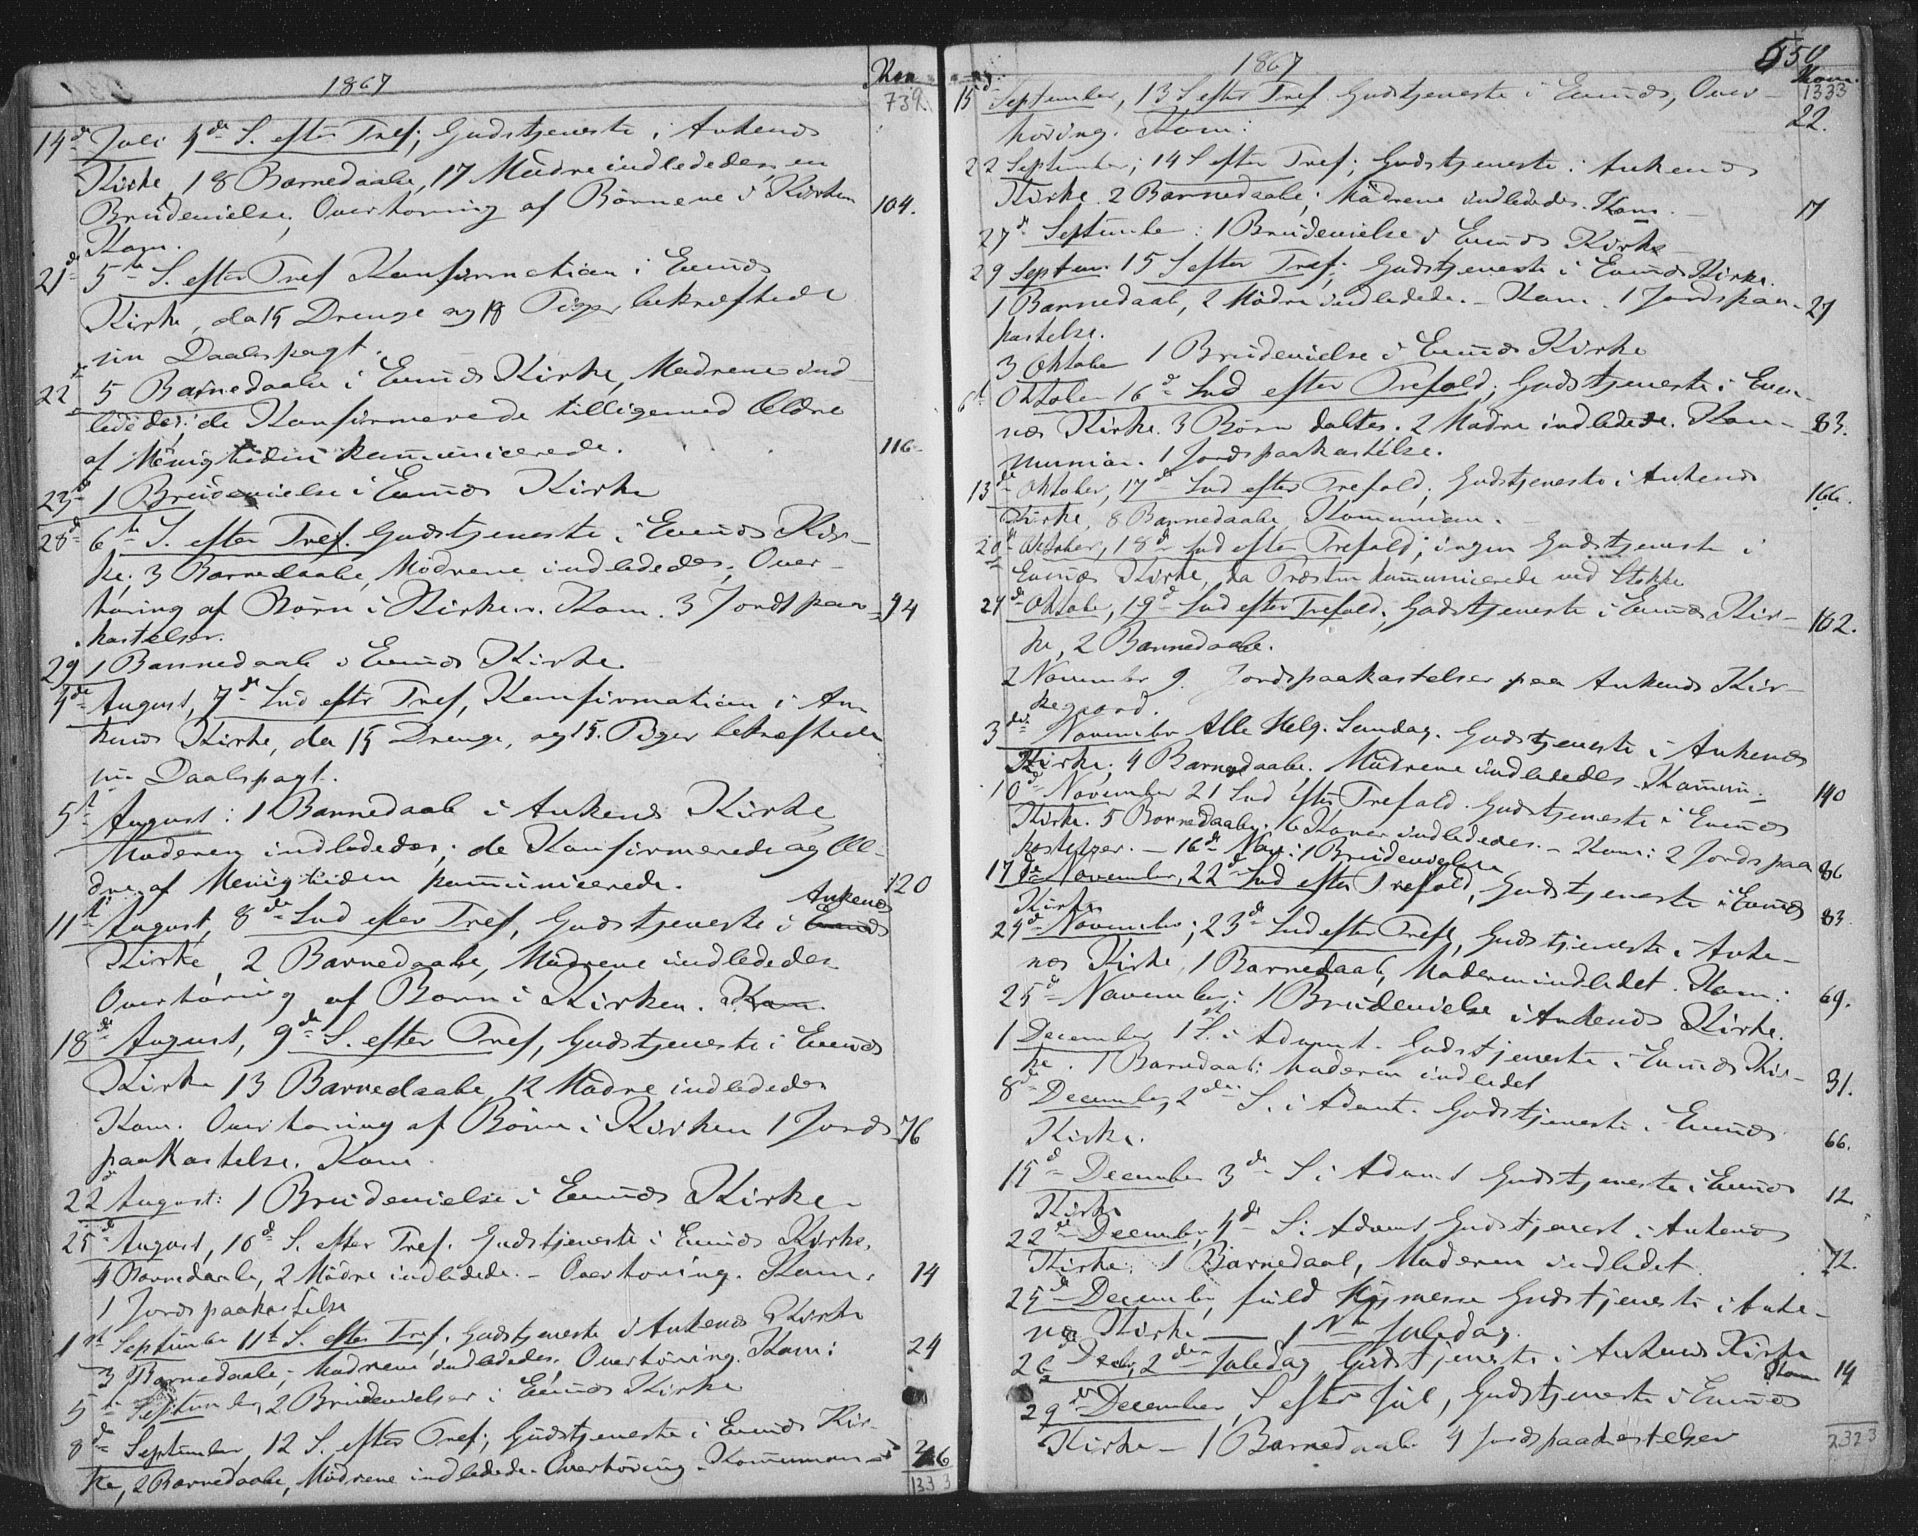 1867
Kom
739.
14de Juli 4de S. efter Tref; Gudstjeneste i Ankenæs
Kirke, 18 Barnedaabe, 17 Mødre indlededes, en
Brudevielse, Overhøring af Børnene i Kirken 104.
Kom.
21de 5te S. efter Tref Konfirmation i Evenæs
Kirke, da 15 Drenge og 18 Piger bekræftede
sin Daabspagt.
22de 5 Barnedaabe i Evenæs Kirke, Mødrene ind-
lededes; de Konfirmerede tilligemed Ældre
af Menigheden kommunicerede. 116.
23de 1 Brudevielse i Evenæs Kirke
28de 6te S. efter Tref. Gudstjeneste i Evenæs Kir-
ke; 3 Barnedaabe, Mødrene indlededes; Over-
høring af Børn i Kirken. Kom. 3 Jordspaa- 94
kastelser.
29 1 Barnedaab i Evenæs Kirke.
4de August, 7de Snd efter Tref, Konfirmation i An-
kenæs Kirke, da 15 Drenge, og 15 Piger bekræftede
sin Daabspagt.
5te August: 1 Barnedaab i Ankenæs Kirke
Moderen indlededes; de Konfirmerede og Æl-
dre af Menigheden kommunicerede. 120
Ankenæs
11te August, 8de Snd efter Tref, Gudstjeneste i Evenæs
Kirke, 2 Barnedaabe, Mødrene indlededes
Overhøring af Børn i Kirken. Kom.
18de August, 9de S. efter Tref, Gudstjeneste i Evenæs
Kirke 13 Barnedaabe, 12 Mødre indlededes
Kom. Overhøring af Børn i Kirken 1 Jords 76
paakastelse. Kom.
22de August: 1 Brudevielse i Evenæs Kirke.
25de August, 10de S. efter Tref. Gudstjeneste i Evenæs Kirke,
4 Barnedaabe, 2 Mødre indledede. - Overhøring. Kom. 14
1 Jordspaakastelse
1ste September 11te S. efter Tref; Gudstjeneste i Ankenæs Kirke
3 Barnedaabe; Mødrene indlededes. Overhøring. Kom: 24
5te September, 2 Brudevielser i Evenæs Kirke
8de September, 12 S. efter Tref; Gudstjeneste i Evenæs Kir-
ke, 2 Barnedaabe, Mødrene indledede. Overhøring - Kommunion 46
1333
1867
650
Kom.
1333
15de September, 13 S efter Tref Gudstjeneste i Evenæs, Over-
høring. Kom: 22.
22 September; 14 S efter Tref; Gudstjeneste i Ankenæs
Kirke. 2 Barnedaabe; Mødrene indlededes. Kom. 17
27de September: 1 Brudevielse i Evenæs Kirke
29 Septem. 15 S efter Tref; Gudstjeneste i Evenæs Kirke.
1 Barnedaab, 2 Mødre indledede. - Kom. 1 Jordspaa- 27
kastelse.
3 Oktober 1 Brudevielse i Evenæs Kirke
6te Oktober 16de Snd efter Trefold; Gudstjeneste i Eve-
næs Kirke. 3 Børn døbtes. 2 Mødre indledede. Kom- 83.
munion. 1 Jordspaakastelse.
13de Oktober, 17de Snd efter Trefold; Gudstjeneste i Ankenæs
Kirke, 8 Barnedaabe, Kommunion. 166.
20de Oktober, 18de Snd efter Trefold; ingen Gudstjeneste i
Evenæs Kirke, da Præsten kommunicerede ved Stokke
27de Oktober, 19de Snd efter Trefold; Gudstjeneste i Evenæs Kir-
ke, 2 Barnedaabe. 102.
2 November 9 Jordspaakastelser paa Ankenæs Kir-
kegaard.
3die November Alle Helg. Søndag. Gudstjeneste i Ankenæs
Kirke; 4 Barnedaabe. Mødrene indlededes - Kommun:
10de November 21 Snd efter Trefold. Gudstjeneste i Evenæs 140
Kirke. 5 Barnedaabe; 6 Koner indlededes. - Kom: 2 Jordspaa
kastelser. - 16de Nov: 1 Brudevielse 86
17de November, 22de Snd efter Trefold, Gudstjeneste i Evenæs
Kirke 83
24de November; 23de Snd efter Tref, Gudstjeneste i Anke-
næs Kirke, 1 Barnedaab, Moderen indledet. Kom: 69.
25de November: 1 Brudevielse i Ankenæs Kirke.
1 December 1 S. i Advent. Gudstjeneste i Evenæs Kir-
ke. 1 Barnedaab: Moderen indledet 31.
8de December, 2den S. i Advent. Gudstjeneste i Evenæs
Kirke. 66.
15de December 3de S. i Advent Gudstjeneste i Evenæs
Kirke 12.
22de December, 4de S. i Advent Gudstjenest i Ankenæs
Kirke: 1 Barnedaab, Moderen indledet. 72.
25de December, fuld Højmesse Gudstjeneste i Anke-
næs Kirke — 1ste Juledag.
26 Decbr, 2den Juledag, Gudstjeneste i Ankenæs Kirke
Kom 14
29de December, S efter Jul, Gudstjeneste i Evenæs
Kirke - 1 Barnedaab. 4 Jordspaakastelser
2323